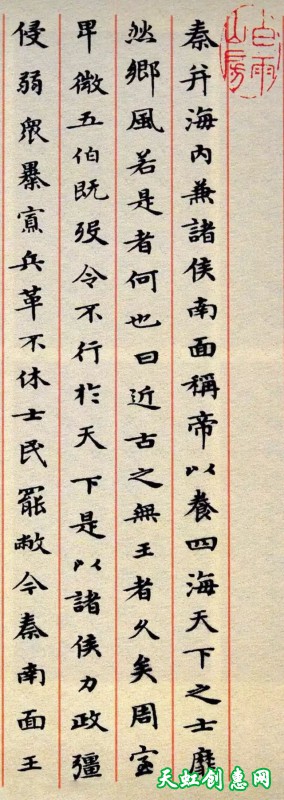 白雨
山房
秦并海內兼諸侯南面稱帝以養四海天下之士靡
然鄉風若是者何也曰近古之無王者久矣周室
卑微五伯既歿令不行於天下是以諸侯力政彊
侵弱眾暴寡兵革不休士民罷敝今秦南面王
天虹创惠网